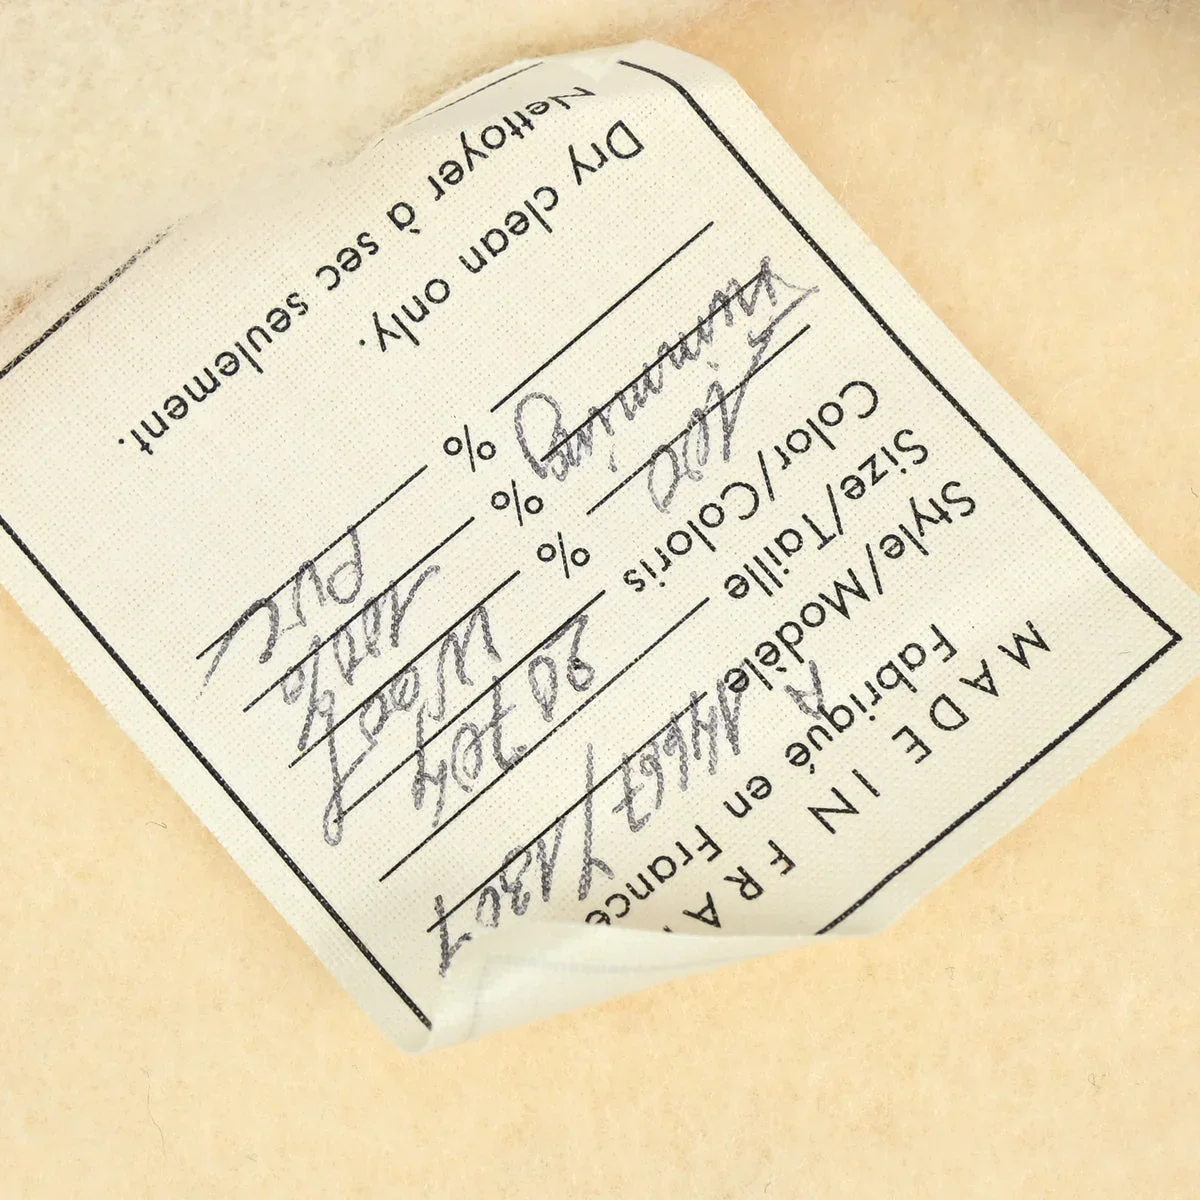 MADE IN FRA
Fabriqué en France
Style/Modèle A 14667 Y1307
Size/Taille
Color/Coloris 20704
100 % Wool
Trimming % 100%
% PVC
Dry clean only.
Nettoyer à sec seulement.